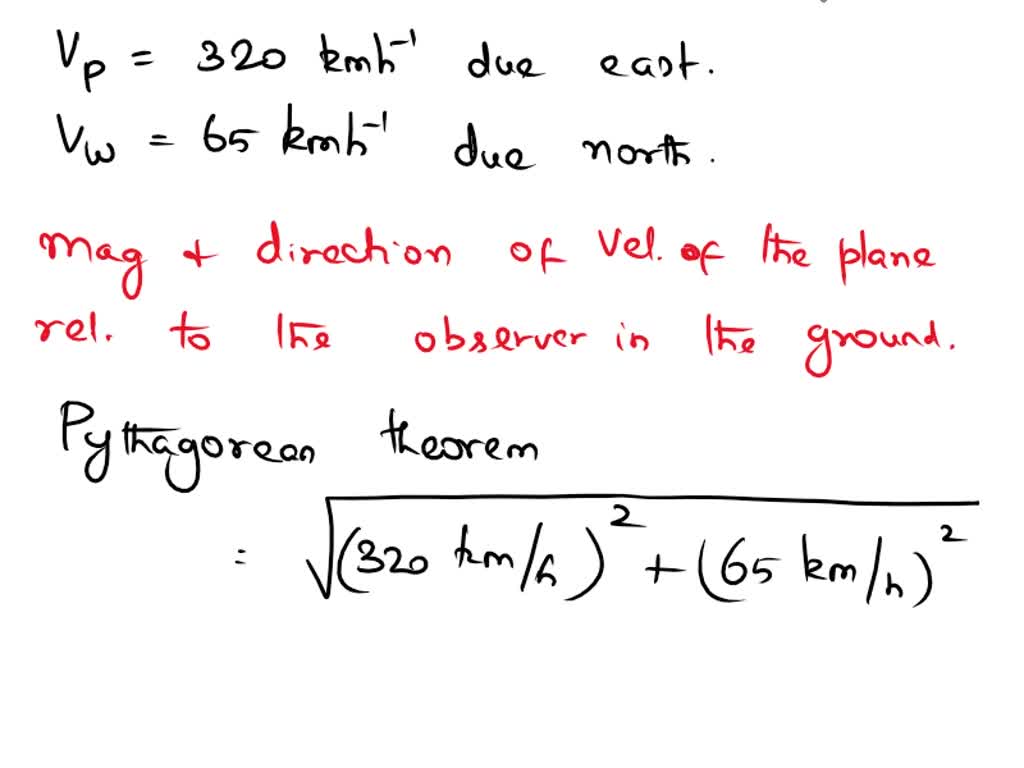 Vp = 320 kmh⁻¹ due east.
Vw = 65 kmh⁻¹ due north.
Mag + direction of Vel. of the plane
rel. to the observer in the ground.
Pythagorean theorem
= √(320 km/h)² + (65 km/h)²